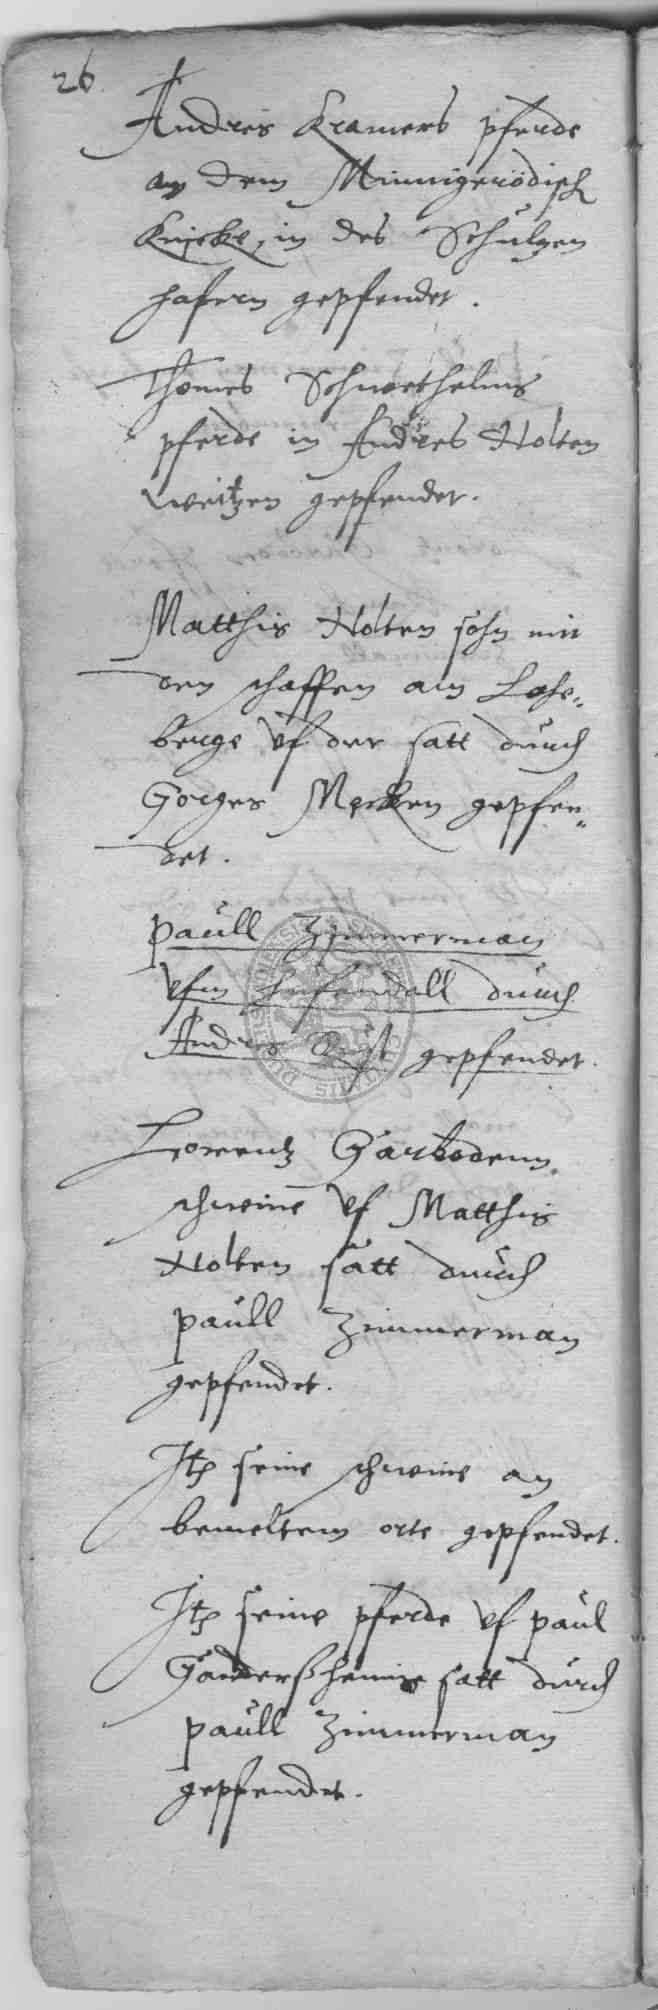 26.
Andres Kramers pferde
an dem Minnigerödisch
Knicke, in des Schulzen
hafern gepfendet.
Thomes Schwethelms
pferde in Andres Nolten
weitzen gepfendet.
Matthis Nolten sohn mit
den schaffen am Lohe„
berge uf der satt durch
Gorges Mecken gepfen„
det.
paull Zimmerman
ufm hufendall durch
Andres gepfendet.
Lorentz Garboden
schweine uf Matthis
Nolten satt durch
paull Zimmerman
gepfendet.
Itz seine schweine an
bemeltem orte gepfendet.
Itz seine pferde uf paul
Ganderßheims satt durch
paull Zimmerman
gepfendet.